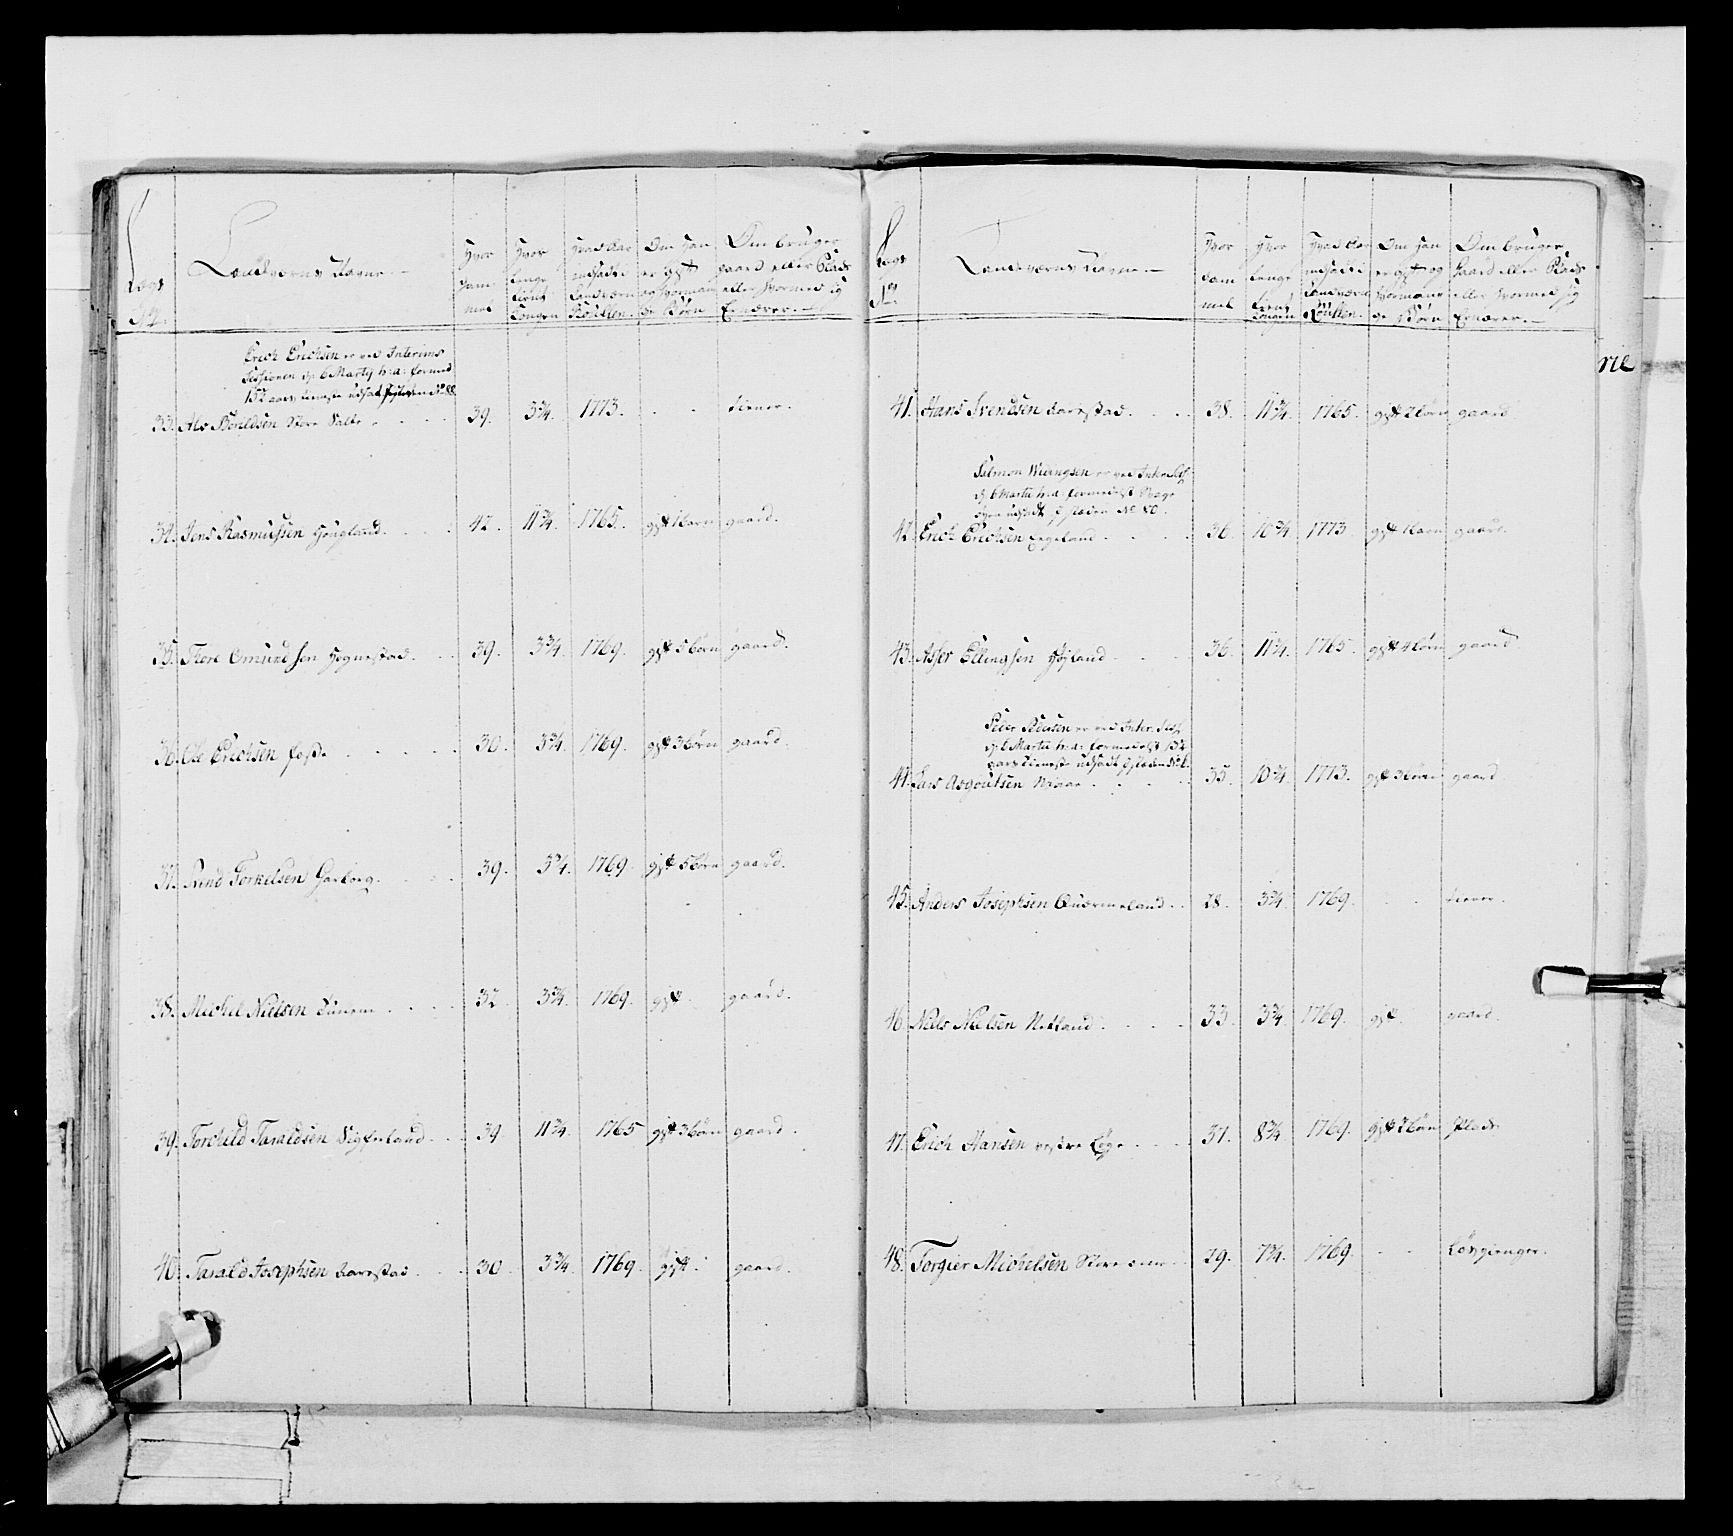 Lægs
No
Landværns Navne.
Hvor
gam
mel
Hvor
lenge
tient
Kongen
Hvad Aar
indsadt i
Landværn
Roullen.
Om han
er gift
og hvormange
Børn
Om bruger
gaard eller Plads
eller hvormed sig
Ernærer.
Erich Erichsen er ved Interims
Sessionen d. 6 Martij h: a: formed
15¾ aars tieneste udsadt
33. Als Borildsen Store Salte 39. 3¾. 1773. . . tiener.
34. Jens Rasmussen Høugland. 42. 11¾. 1765. gift 1 barn gaard.
35. Thore Omundsen Hognestad. 39. 3¾. 1769. gift 5 børn gaard.
36. Ole Erichsen fosse 30. 3¾. 1769. gift 3 børn gaard.
37. Svend Torkelsen Garborg. 39. 3¾. 1769. gift 5 børn gaard.
38. Michel Nielsen Tunem 32. 3¾. 1769. gift. gaard.
39. Torchild Taraldsen Sigferland. 39 11¾. 1765 gift 3 børn gaard.
40. Tarald Josephsen Aarestad. 30. 3¾. 1769. gift. gaard.
Lægs
No
Landværns Navne.
Hvor
gam
mel
Hvor
lenge
tient
Kongen
Hvad Aar
indsadt i
Landværn
Roullen.
Om han
er gift og
hvormange
Børn
Om bruger
Gaard eller Plads
eller hvormed sig
Ernærer.
rie
41. Hans Svendsen Aarestad. 38. 11¾. 1765. gift 2 børn gaard
Salmon er ved Inter: Sess:
d. 6 Martii h: a: formedelst Svage
øyne udsadt No 80.
42. Erich Erichsen Eegeland 36. 10¾. 1773 gift 1 barn gaard.
43. Asser Ellingsen Høyland 36. 11¾. 1765. gift 4 børn gaard.
Peder Pedersen er ved Inter: Sess:
d. 6 Martii h: a: formedelst 15¾
aars tieneste udsadt
44. Lars Asgoutsen Njaae 35. 10¾. 1773. gift 3 børn gaard.
45. Anders Josephsen Quærneland. 28. 3¾. 1769. . . tiener.
46. Niels Nielsen Netland. 33. 3¾. 1769. gift. gaard.
47. Erich Hansen vestre Løge 37. 8¾. 1769. gift 2 børn Plads
48. Torgier Michelsen Store 29. 7¾. 1769. . . Løsgienger.